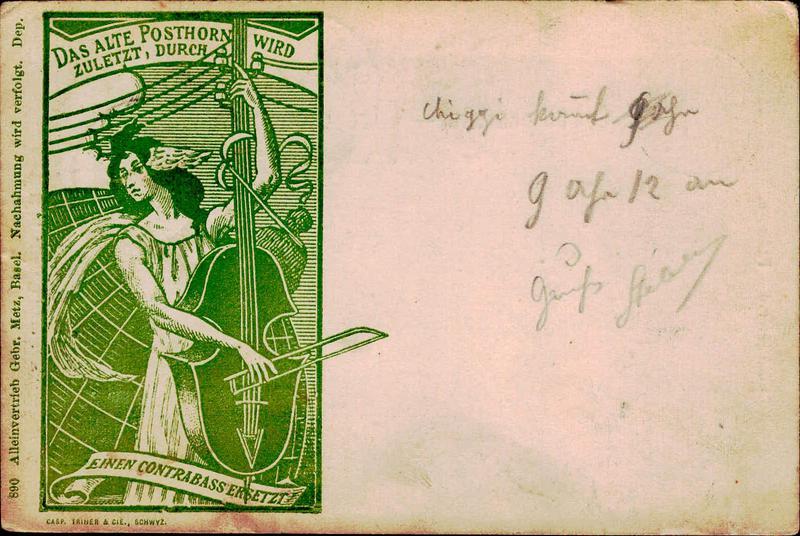 DAS ALTE POSTHORN WIRD
ZULETZT, DURCH
EINEN CONTRABASS ERSETZT
890 Alleinvertrieb Gebr. Metz, Basel. Nachahmung wird verfolgt. Dep.
CASP. TRINER & CIE., SCHWYZ.
kommt
9 Uhr 12 an
Gruß